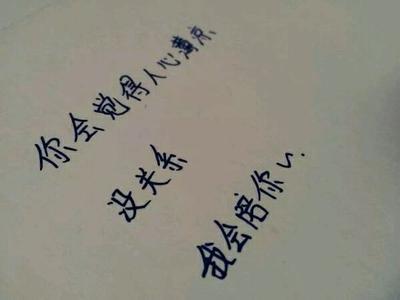 你会觉得人心薄凉
没关系
我会陪你